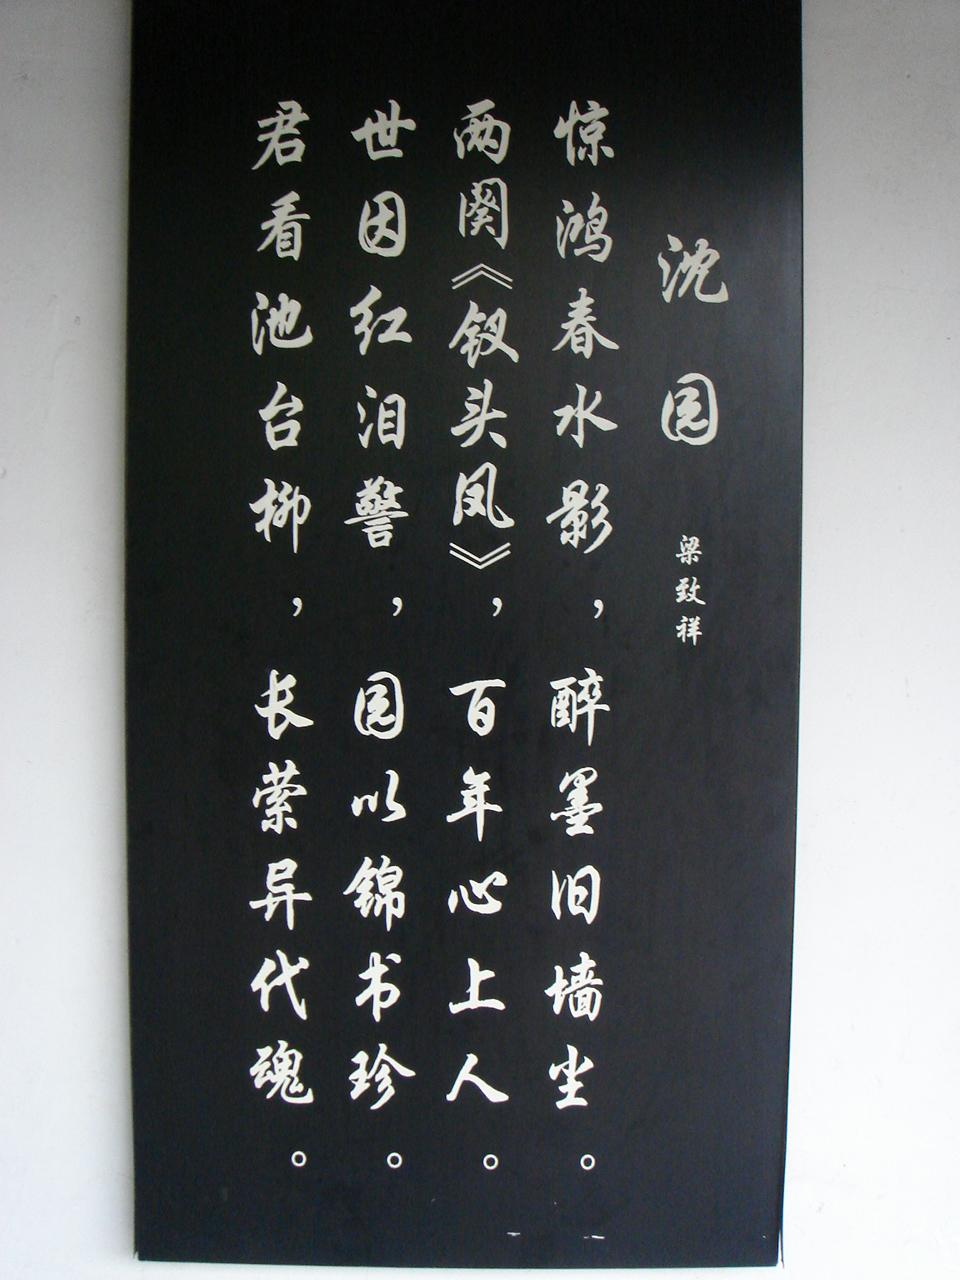 沈园
梁致祥
惊鸿春水影，醉墨旧墙尘。
两阕《钗头凤》，百年心上人。
世因红泪警，园以锦书珍。
君看池台柳，长萦异代魂。